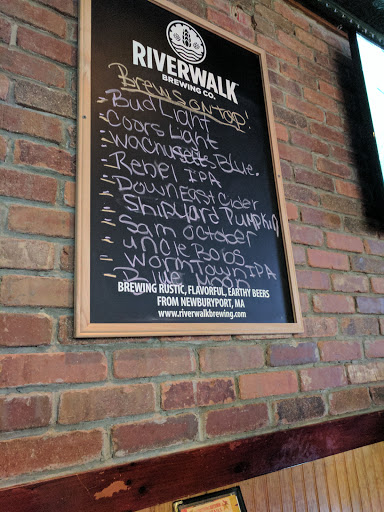 RIVERWALK
BREWING CO.
Brews on TOP!
Bud Light
Coors Light
Wachusett Blue.
Rebel IPA
Down East Cider
Shipyard Pumpkin
Sam October
uncle Bobs
Wormtown IPA
Blue Moon
BREWING RUSTIC, FLAVORFUL, EARTHY BEERS
FROM NEWBURYPORT, MA
www.riverwalkbrewing.com